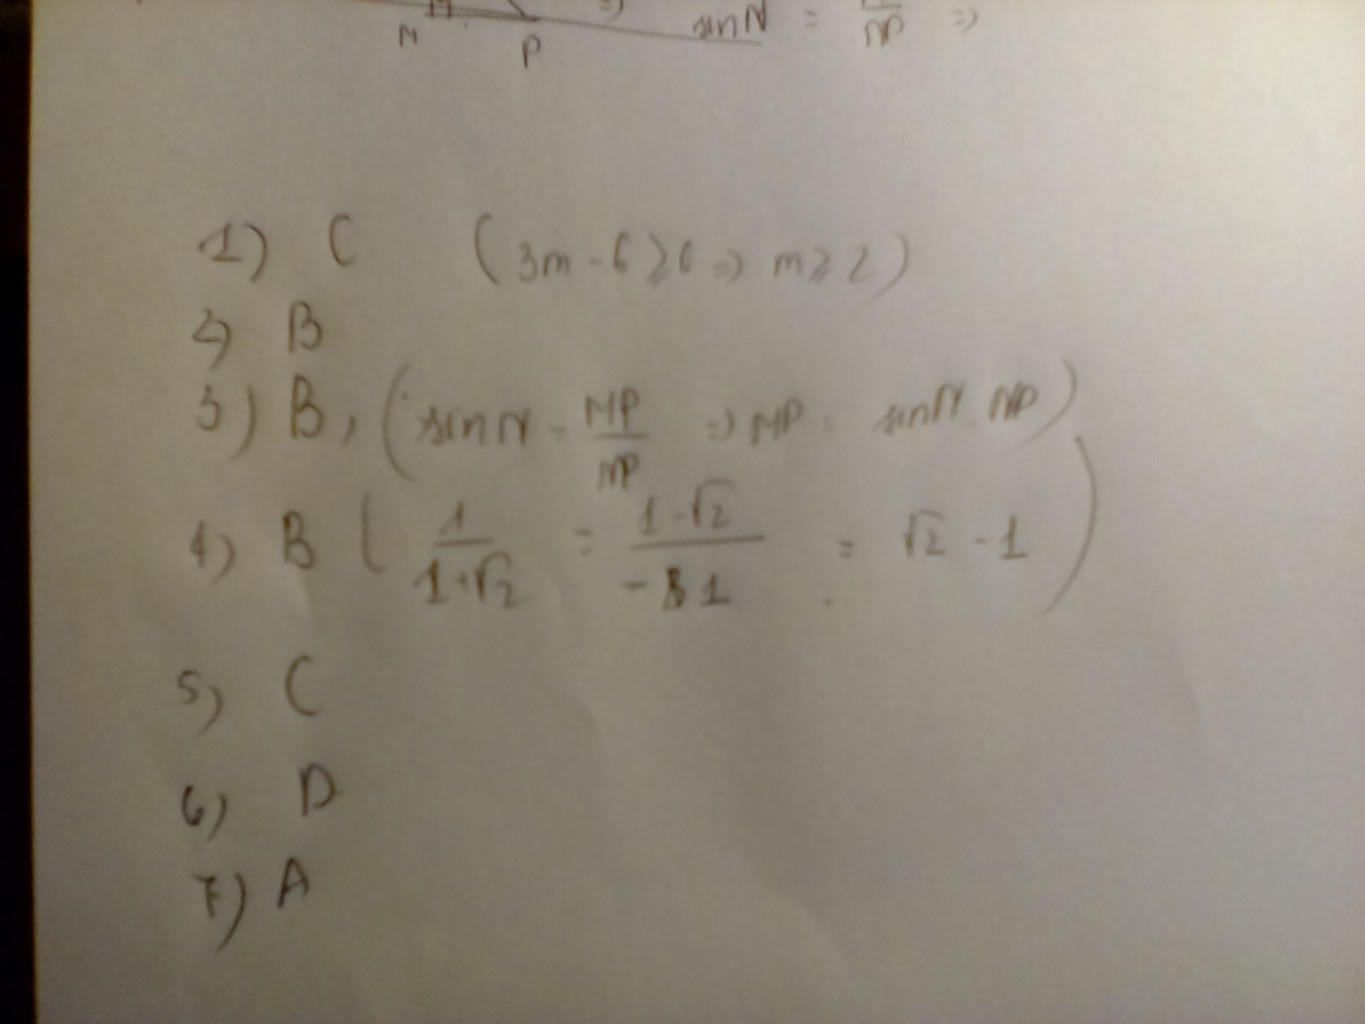 N P sinN = /NP =>
1) C (3m - 6 ≥ 0 => m ≥ 2)
2) B
3) B, (sinN = MP/NP => MP = sinN. NP)
4) B ( 1/1+√2 = 1-√2/-1 = √2 - 1 )
5) C
6) D
7) A